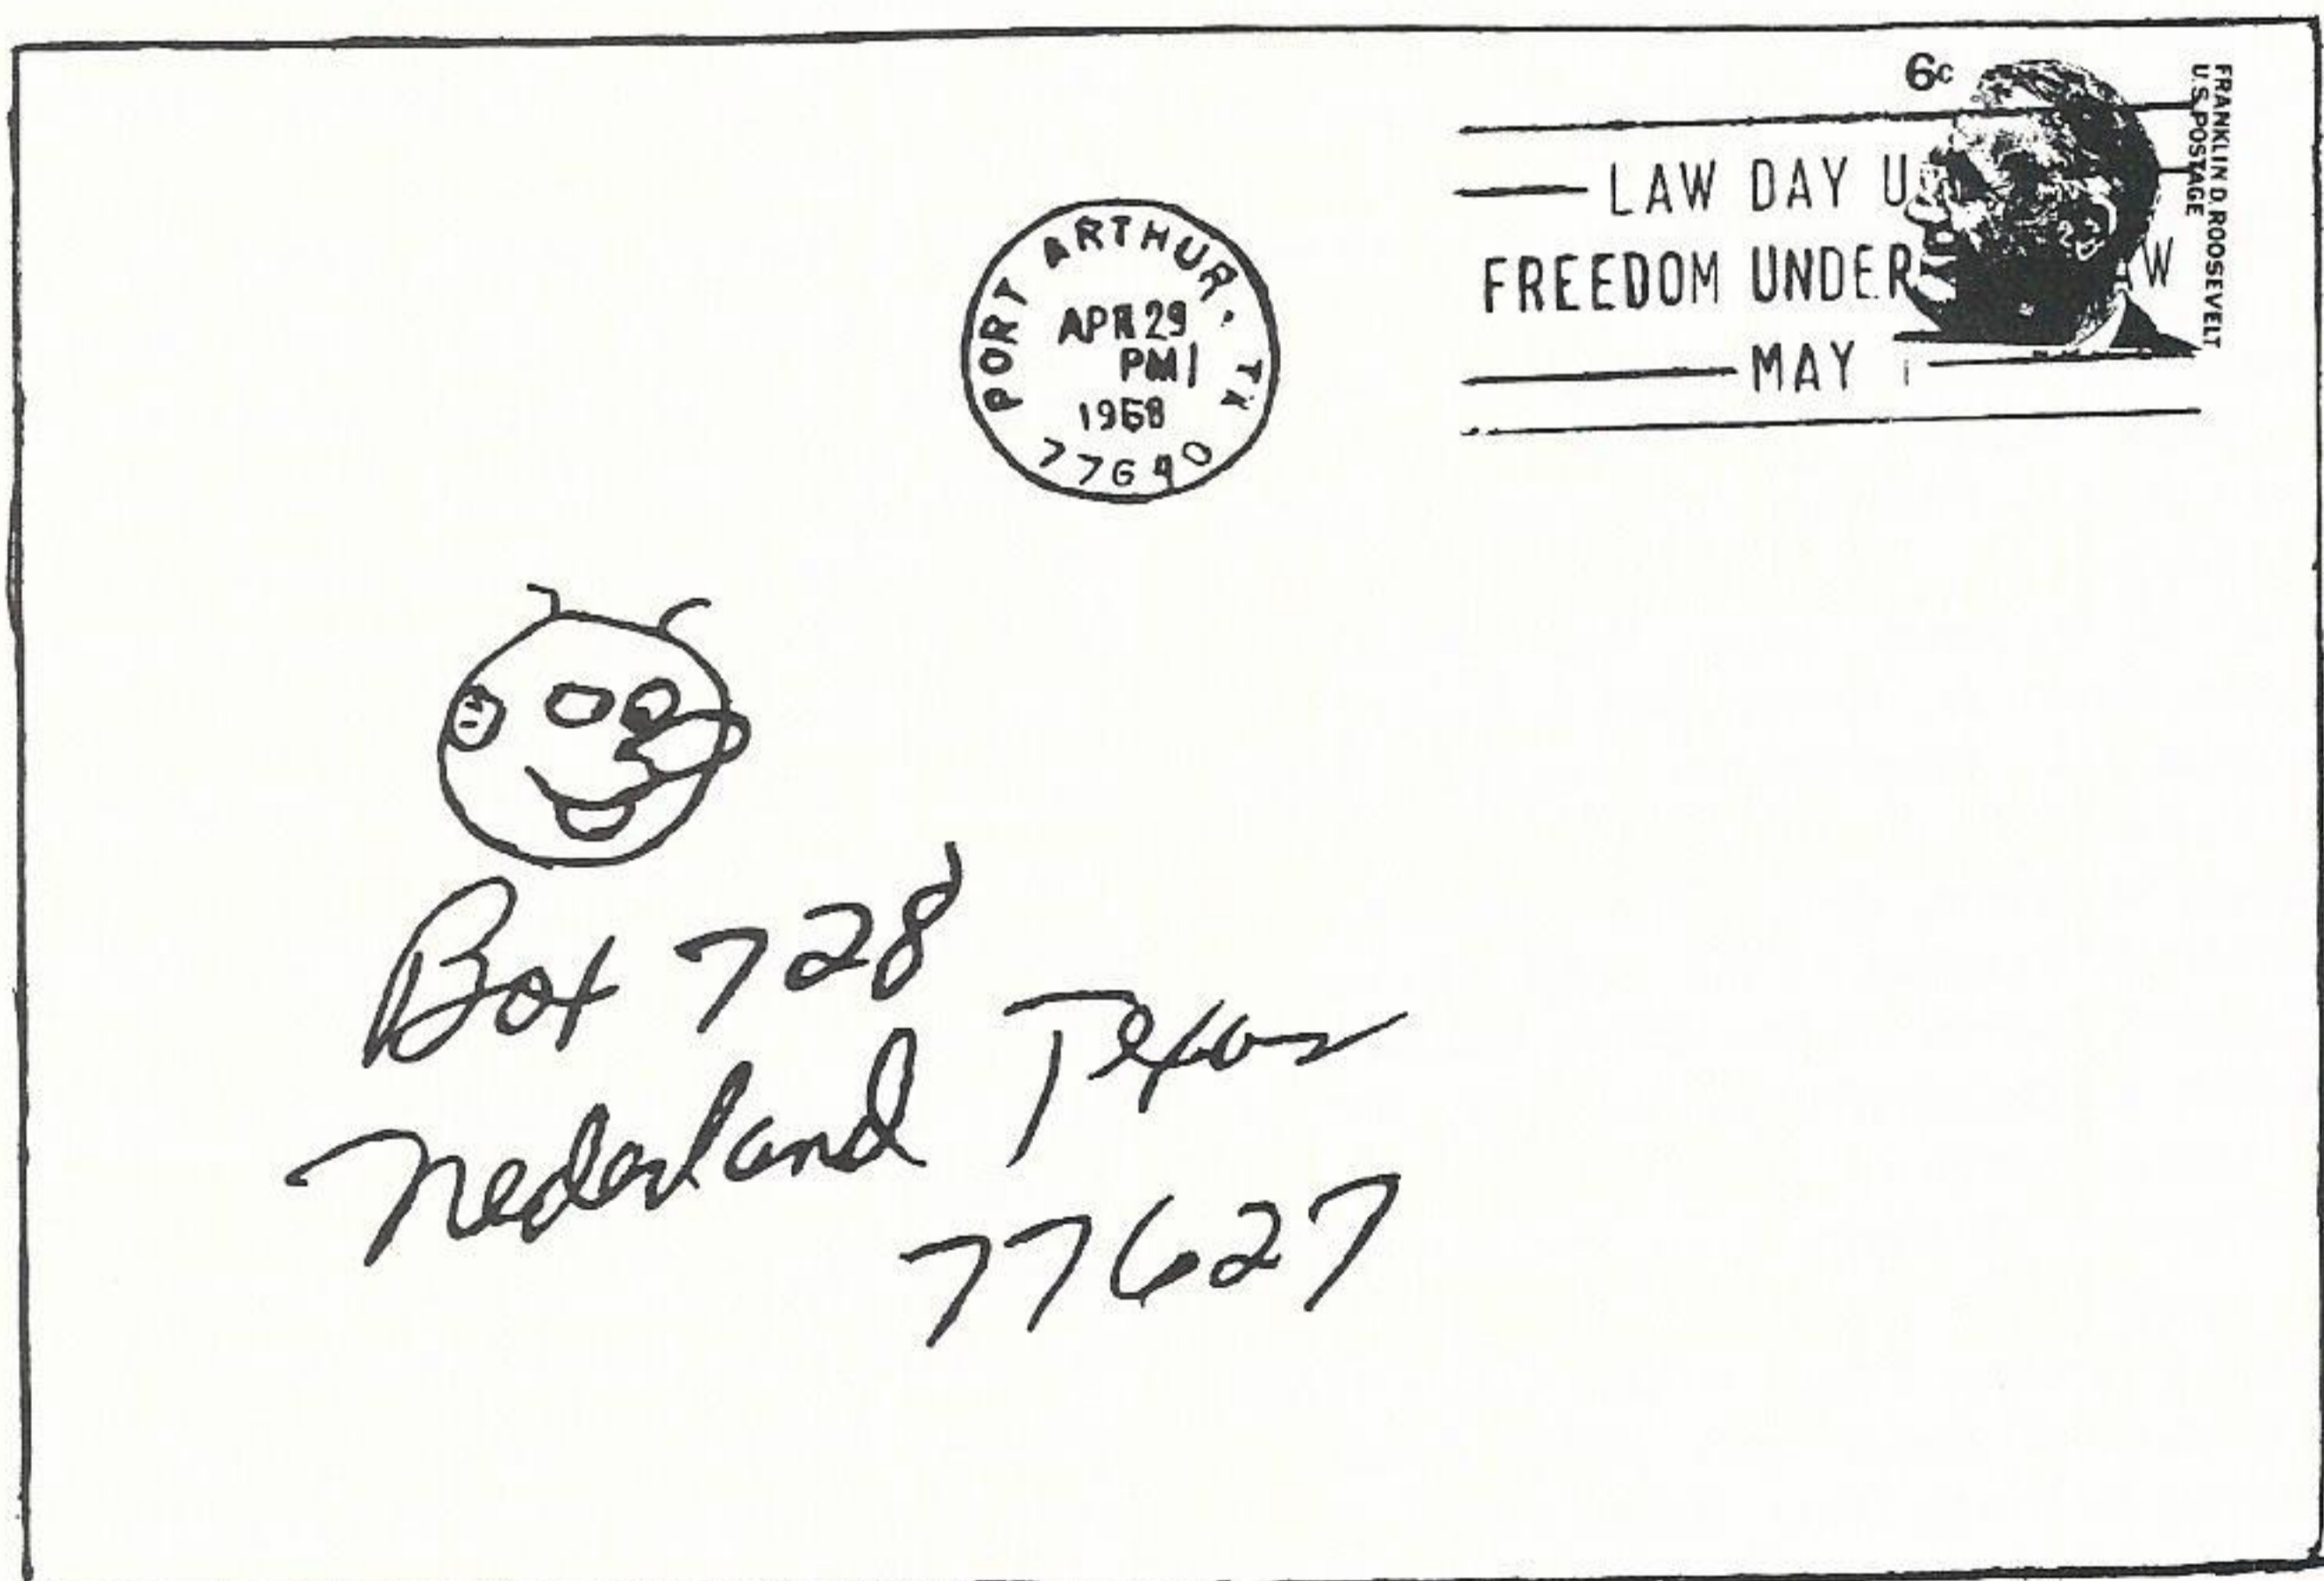 6c
FRANKLIN D. ROOSEVELT
U.S. POSTAGE
LAW DAY U
FREEDOM UNDER W
MAY 1
PORT ARTHUR. TX
APR 29
PM 1
1968
77640
Box 728
Nederland Texas
77627